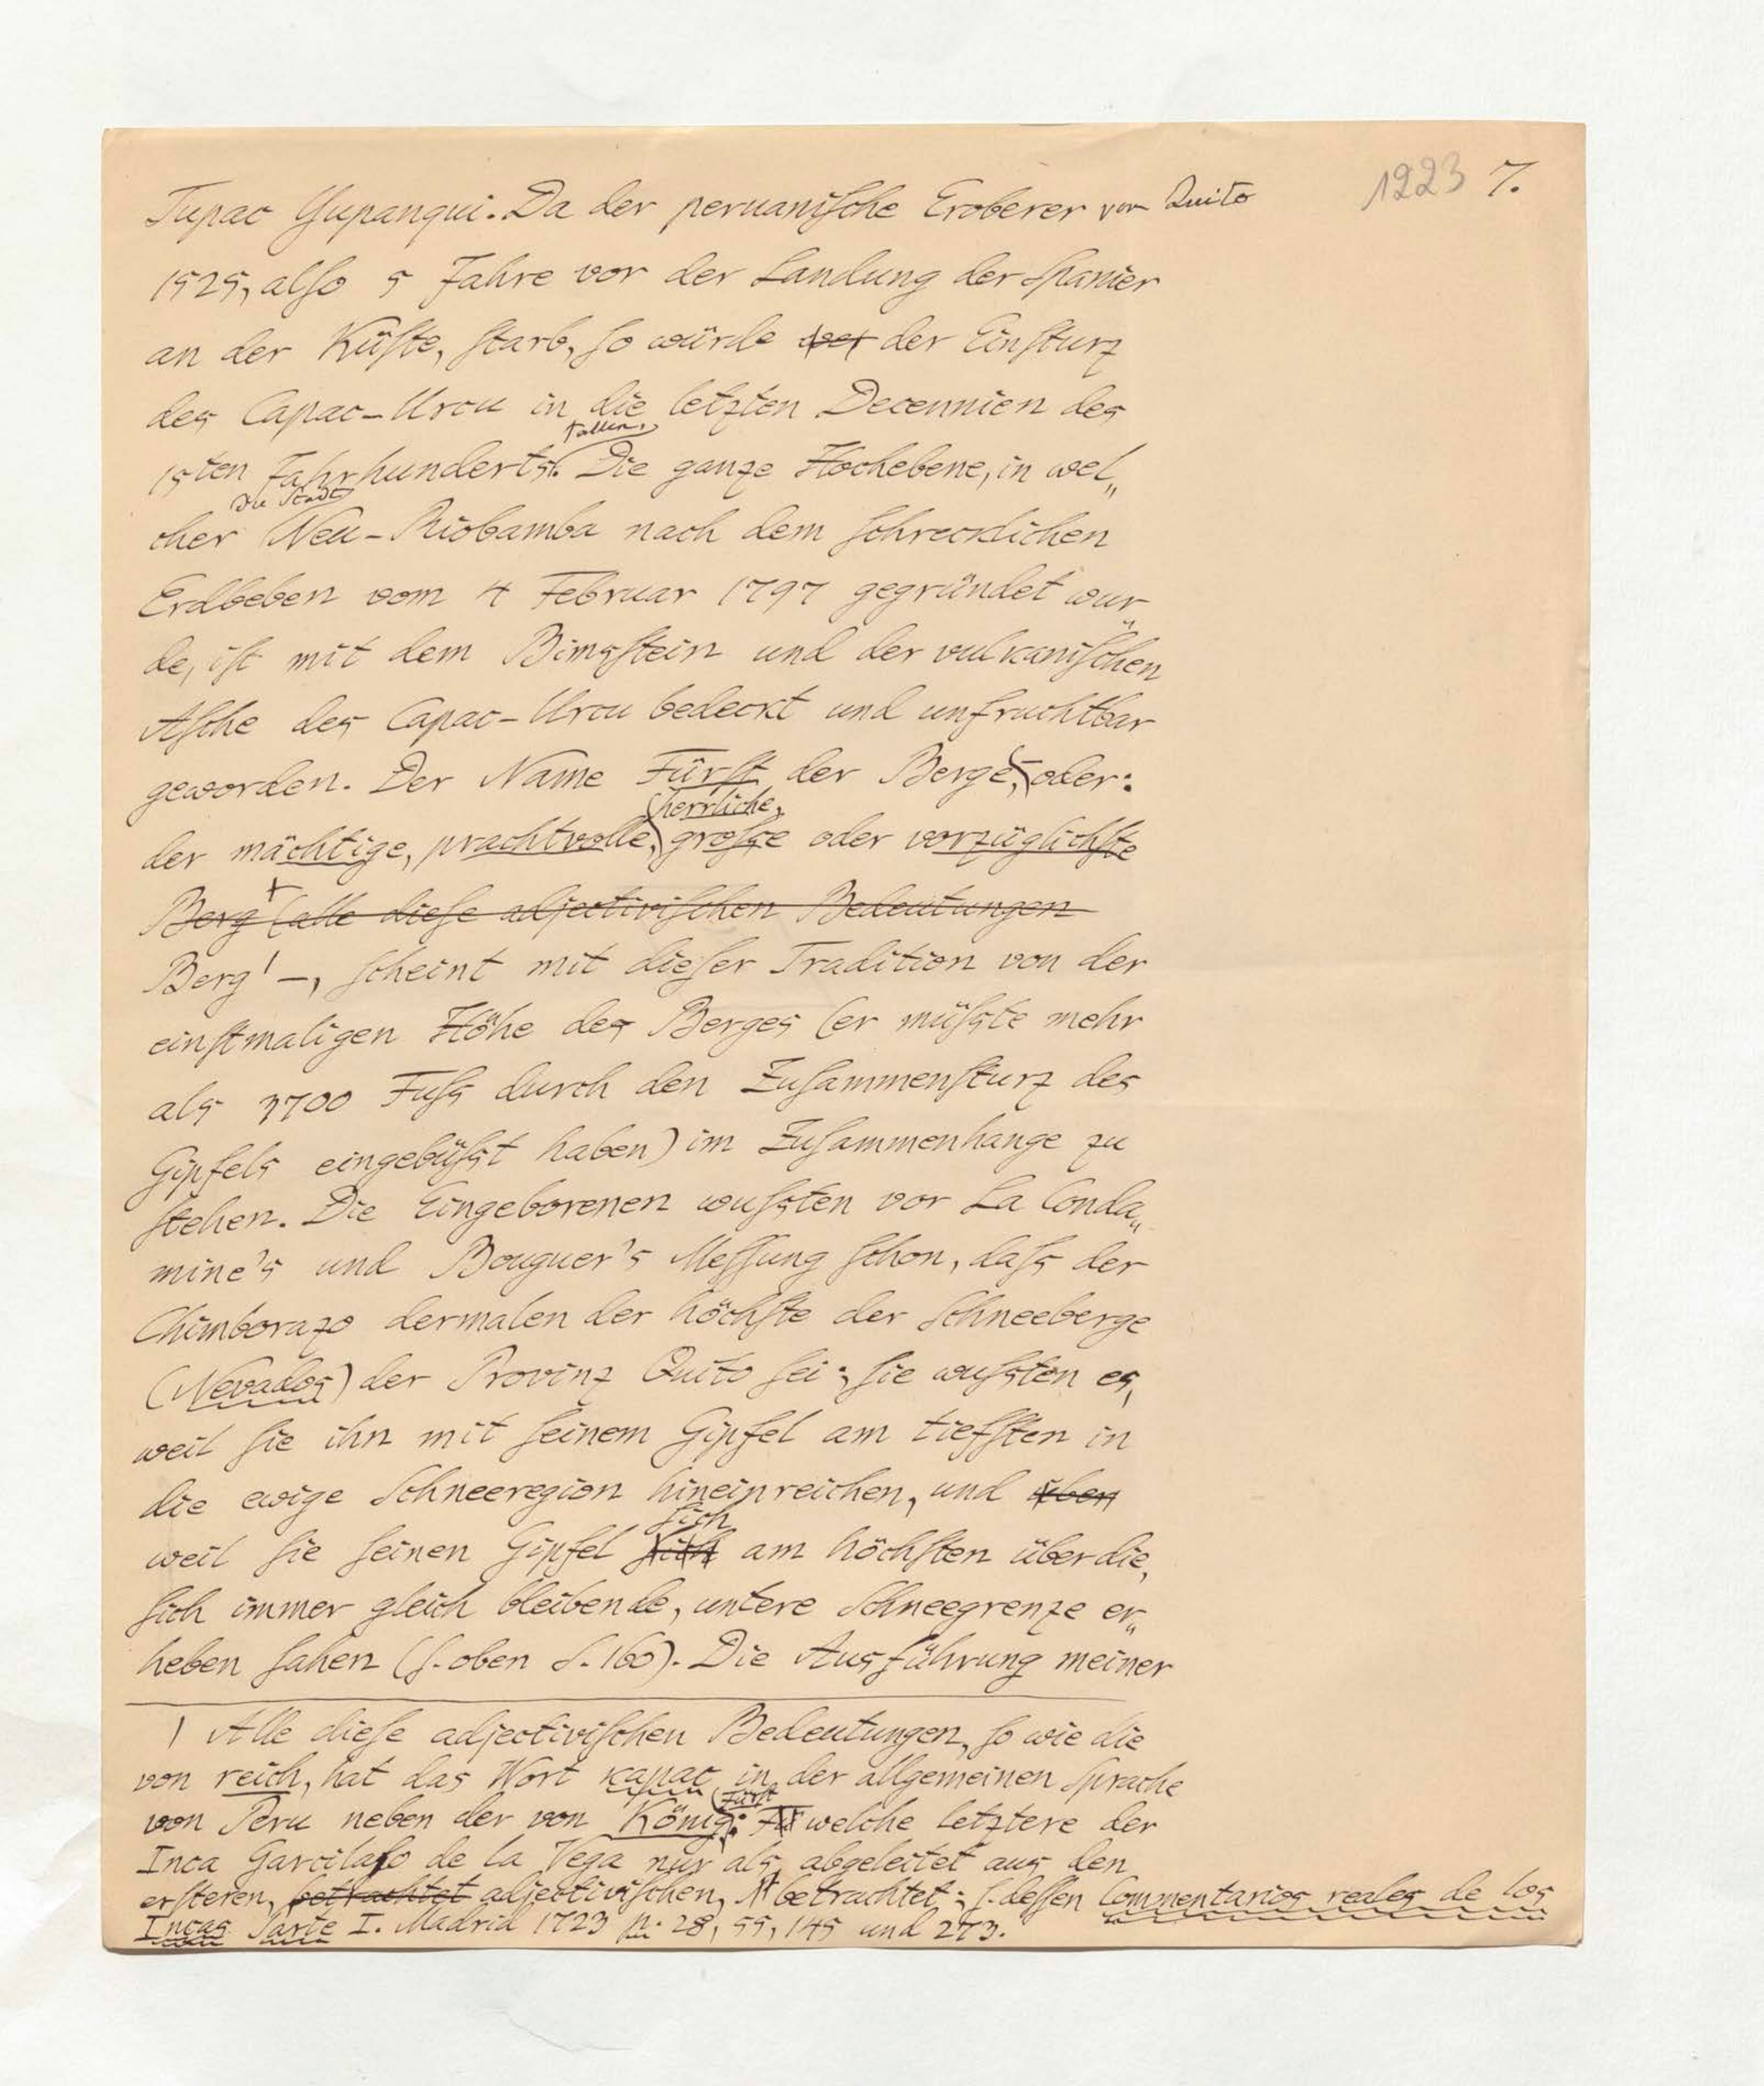 1223 7.
Tupac Yupanqui. Da der peruaniſche Eroberer von Quito
1525, alſo 5 Jahre vor der Landung der Spanier
an der Küſte, ſtarb, ſo würde der Einſturz
des Capac-Urcu in die letzten Decennien des
fallen.
15ten Jahrhunderts. Die ganze Hochebene, in wel„
die Stadt
cher Neu-Riobamba nach dem ſchrecklichen
Erdbeben vom 4 Februar 1797 gegründet wur„
de, iſt mit dem Bimsſtein und der vulkaniſchen
Aſche des Capac-Urcu bedeckt und unfruchtbar
geworden. Der Name Fürſt der Berge, oder:
herrliche,
der mächtige, prachtvolle, groſse oder vorzüglichſte
Berg (alle dieſe adjectiviſchen Bedeutungen
Berg 1 –, ſcheint mit dieſer Tradition von der
einſtmaligen Höhe des Berges (er müſste mehr
als 3700 Fuſs durch den Zuſammenſturz des
Gipfels eingebüſst haben) im Zuſammenhange zu
ſtehen. Die Eingeborenen wuſsten vor La Conda„
mine's und Bouguer's Meſſung ſchon, daſs der
Chimborazo dermalen der höchſte der Schneeberge
(Nevados) der Provinz Quito ſei; ſie wuſsten es,
weil ſie ihn mit ſeinem Gipfel am tiefſten in
die ewige Schneeregion hineinreichen, und eben
ſich
weil ſie ſeinen Gipfel ſich am höchſten über die,
ſich immer gleich bleibende, untere Schneegrenze er„
heben ſahen (ſ. oben S. 160). Die Ausführung meiner
1 Alle dieſe adjectiviſchen Bedeutungen, ſo wie die
von reich, hat das Wort kapac in der allgemeinen Sprache
Fürſt
von Peru neben der von König: welche letztere der
Inca Garcilaſo de la Vega nur als abgeleitet aus den
erſteren, betrachtet adjectiviſchen, betrachtet; ſ. deſſen Commentarios reales de los
Incas Parte I. Madrid 1723 p. 28, 55, 145 und 273.